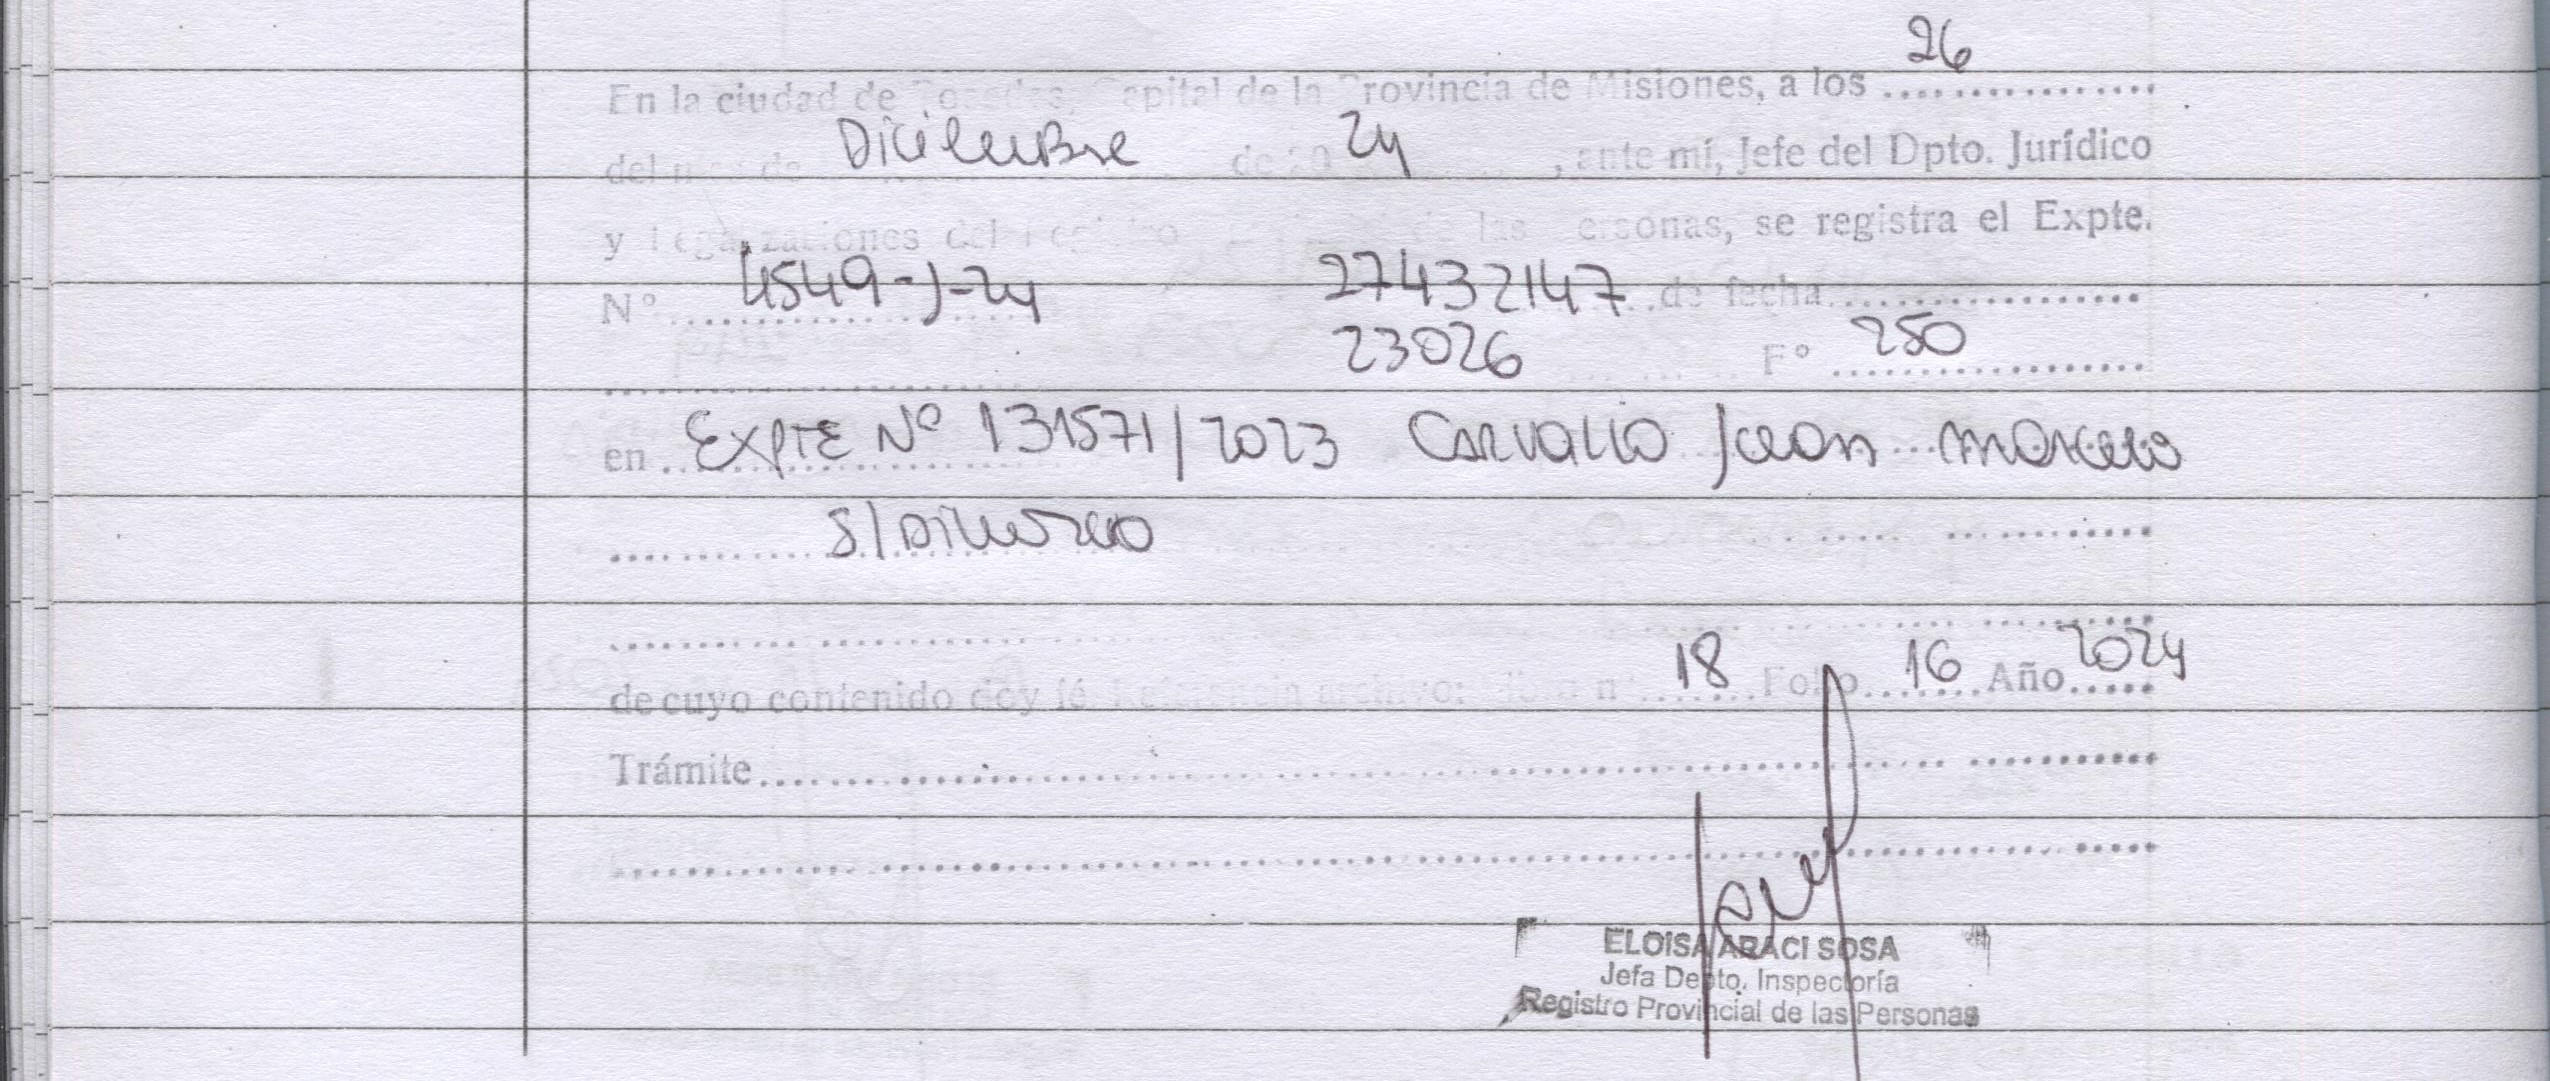 26
En la ciudad de Posadas, Capital de la Provincia de Misiones, a los ................
del mes de Diciembre de 20 24 , ante mí, Jefe del Dpto. Jurídico
y Legalizaciones del Registro de las Personas, se registra el Expte.
N° 4549-J-24 27432147 de fecha ..................
23026 F° 250
en Expte N° 131571/2023 Carvallo Juan Marcelo
S/Divorcio
de cuyo contenido doy fé. Referencia archivo: Libro n° 18 Folio 16 Año 2024
Trámite
ELOISA ARACI SOSA
Jefa Depto. Inspectoría
Registro Provincial de las Personas